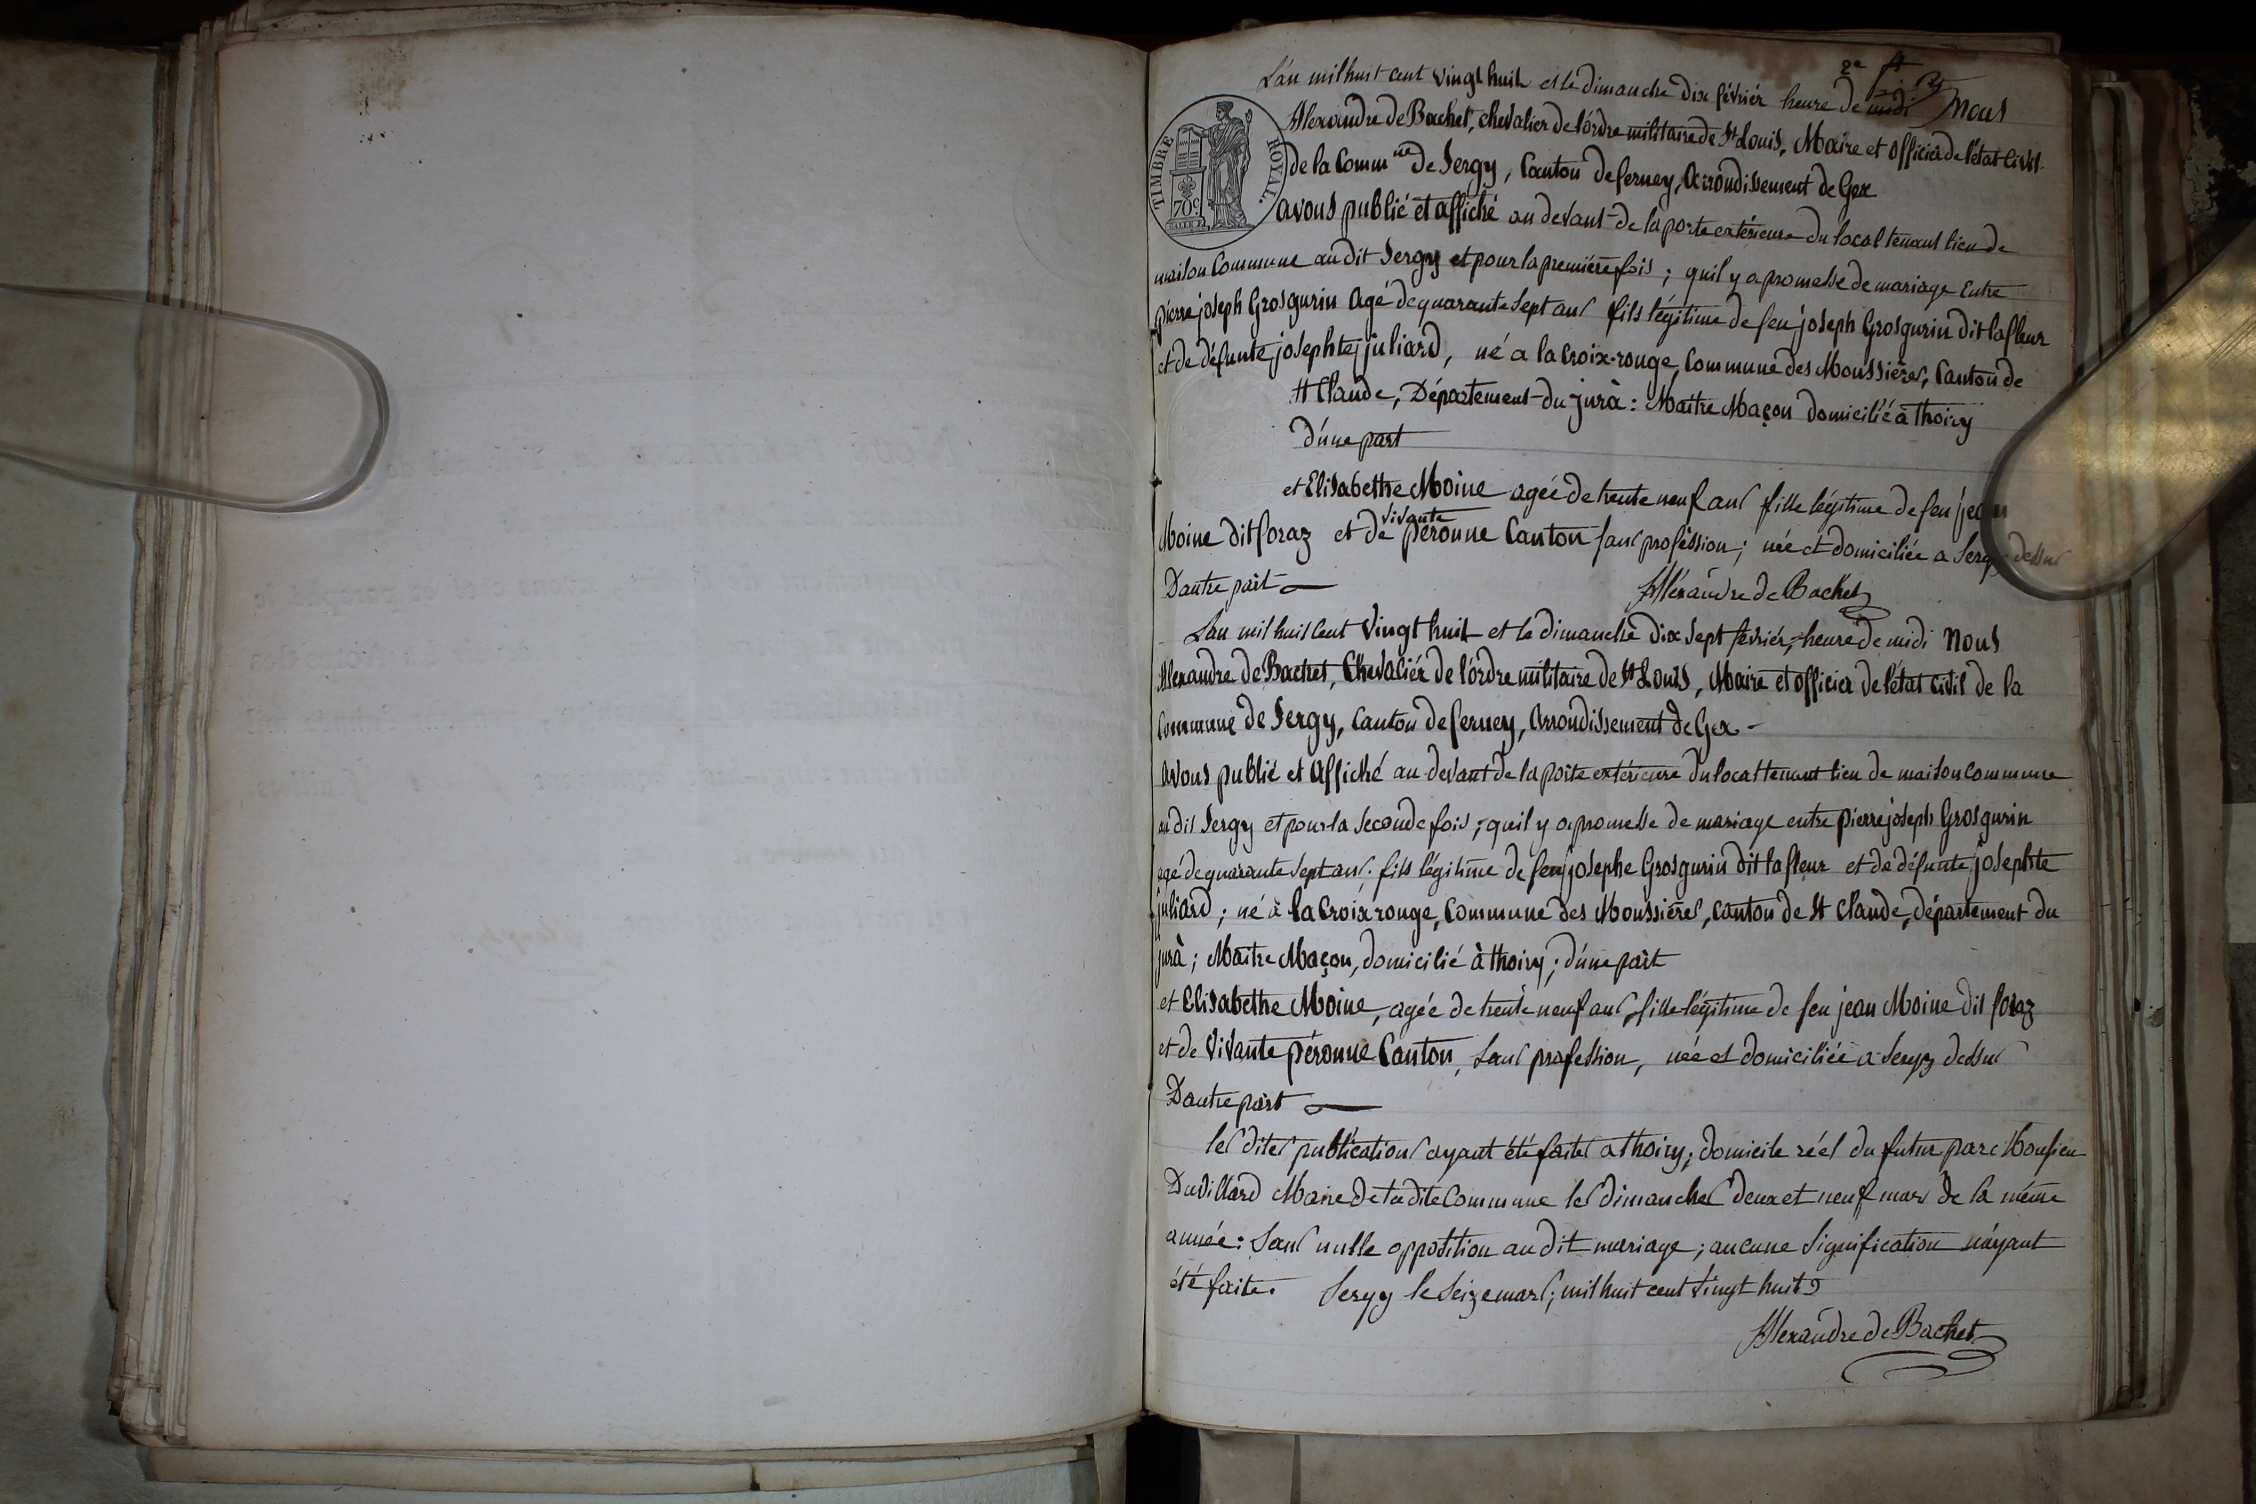 2e
L'an mil huit cent vingt huit et le dimanche dix février heure de midi Nous
Alexandre de Bachet, chevalier de l'órdre militaire de St Louis, Maire et officier de l'état Civil
de la Comm ne de Sergy, Canton de ferney, Arrondissement de Gex
TIMBRE ROYAL.
70c
avons publié et affiché au devant de la porte extérieure du local tenant lieu de
maison Commune au dit Sergy et pour la premiére fois ; quil y a promesse de mariage Entre
pierre joseph Grosgurin Agé de quarante Sept ans fils légitime de feu joseph Grosgurin dit lafleur
et de défunte josephte juliard, né a la Croix-rouge, Commune des Moussières, Canton de
St Claude, Département du jurà : Maitre Maçon domicilié à Thoiry
d'une part
et Elisabethe Moine agée de trente neuf ans fille légitime de feu jean
Moine dit foraz et de vivante péronne Canton sans profession ; née et domiciliée a Sergy dessus
D'autre part
Alexandre de Bachet
L'an mil huit Cent Vingt huit et le dimanche dix Sept février, heure de midi Nous
Alexandre de Bachet, Chevaliér de l'órdre militaire de St Louis, Maire et officier de l'état civil de la
Commune de Sergy, Canton de ferney, Arrondissement de Gex -
Avons publié et Affiché au devant de la porte extérieure du local tenant lieu de maison commune
au dit Sergy et pour la seconde fois ; quil y a promesse de mariage entre pierre joseph Grosgurin
agé de quarante sept ans ; fils légitime de feu josephe Grosgurin dit lafleur et de défunte josephte
juliard ; né à la Croix rouge, Commune des Moussières, canton de St Claude, département du
jurà ; Maitre Maçon, domicilié à thoiry ; d'une part
et Elisabethe Moine, agée de trente neuf ans, fille légitime de feu jean Moine dit foraz
et de Vivante péronne Canton, sans profession, née et domiciliée a Sergy dessus
D'autre part
les dites publications ayant été faites a thoiry ; domicile réel du futur par Monsieu
Duvillard Maire de la dite Commune les dimanches deux et neuf mars de la même
année : Sans nulle opposition au dit mariage ; aucune Signification n'ayant
été faite. Sergy le Seize mars ; mil huit cent vingt huit
Alexandre de Bachet